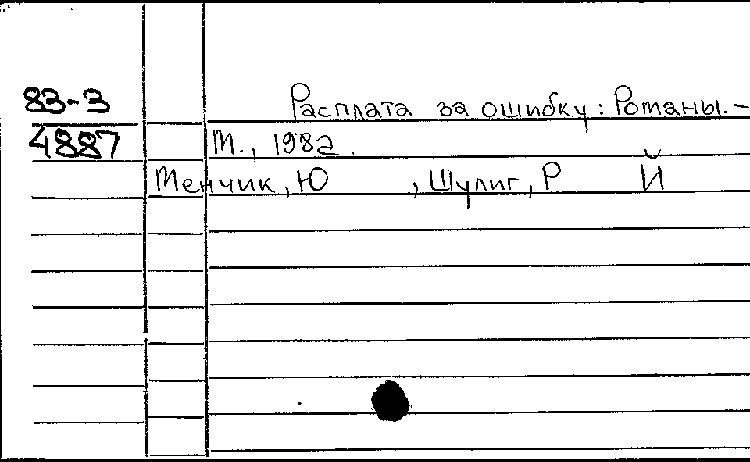 83-3
4887
Расплата за ошибку: Романы. -
М., 1982.
Менчик, Ю , Шулиг, Р Й